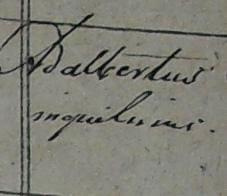 Adalbertus
inquilinus.